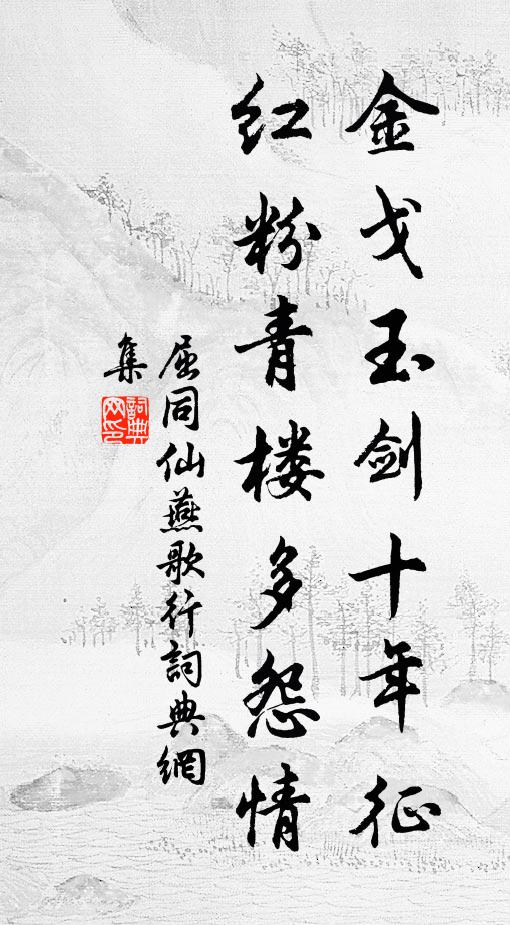 金戈玉剑十年征
红粉青楼多怨情
屈同仙燕歌行词典網
集
詞典網印